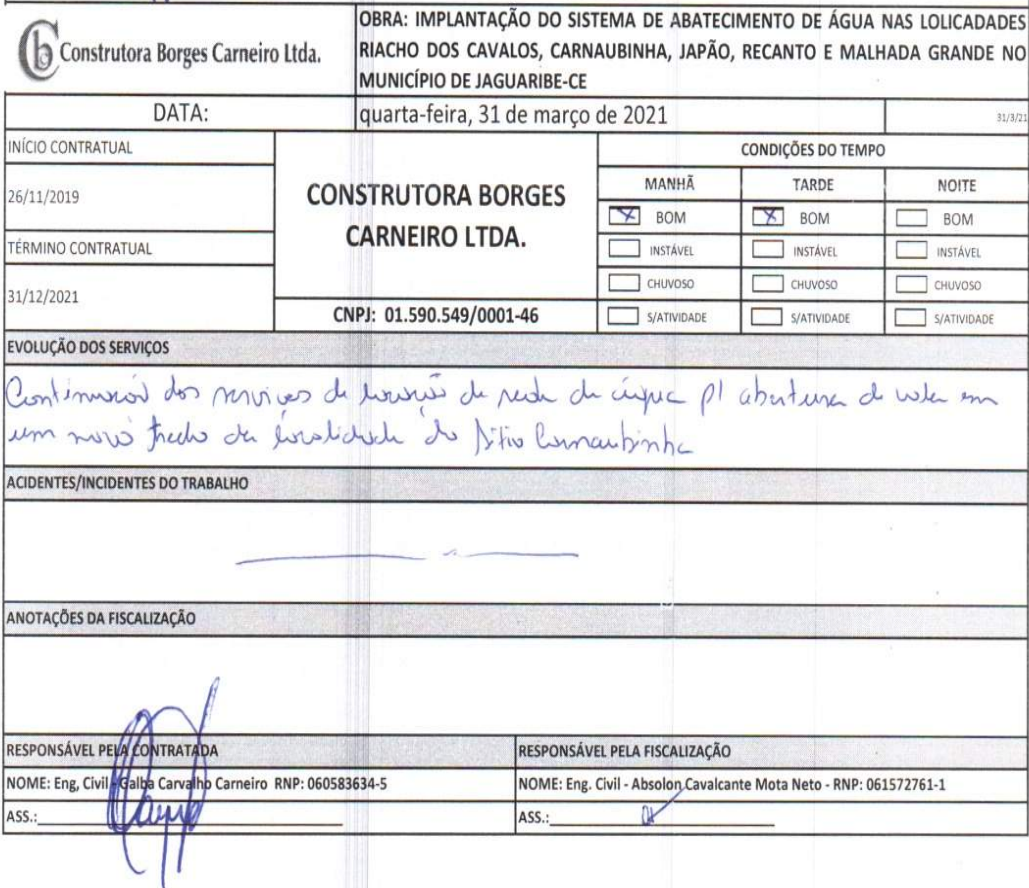 Construtora Borges Carneiro Ltda.
OBRA: IMPLANTAÇÃO DO SISTEMA DE ABATECIMENTO DE ÁGUA NAS LOLICADADES
RIACHO DOS CAVALOS, CARNAUBINHA, JAPÃO, RECANTO E MALHADA GRANDE NO
MUNICÍPIO DE JAGUARIBE-CE
DATA:
quarta-feira, 31 de março de 2021
31/3/21
INÍCIO CONTRATUAL
26/11/2019
TÉRMINO CONTRATUAL
31/12/2021
CONSTRUTORA BORGES
CARNEIRO LTDA.
CNPJ: 01.590.549/0001-46
CONDIÇÕES DO TEMPO
MANHÃ TARDE NOITE
X BOM X BOM BOM
INSTÁVEL INSTÁVEL INSTÁVEL
CHUVOSO CHUVOSO CHUVOSO
S/ATIVIDADE S/ATIVIDADE S/ATIVIDADE
EVOLUÇÃO DOS SERVIÇOS
Continuação dos serviços de locação de rede de água p/ abertura de vala em
um novo trecho da localidade do Sítio Carnaubinha
ACIDENTES/INCIDENTES DO TRABALHO
ANOTAÇÕES DA FISCALIZAÇÃO
RESPONSÁVEL PELA CONTRATADA
NOME: Eng, Civil - Galba Carvalho Carneiro RNP: 060583634-5
ASS.:
RESPONSÁVEL PELA FISCALIZAÇÃO
NOME: Eng. Civil - Absolon Cavalcante Mota Neto - RNP: 061572761-1
ASS.: